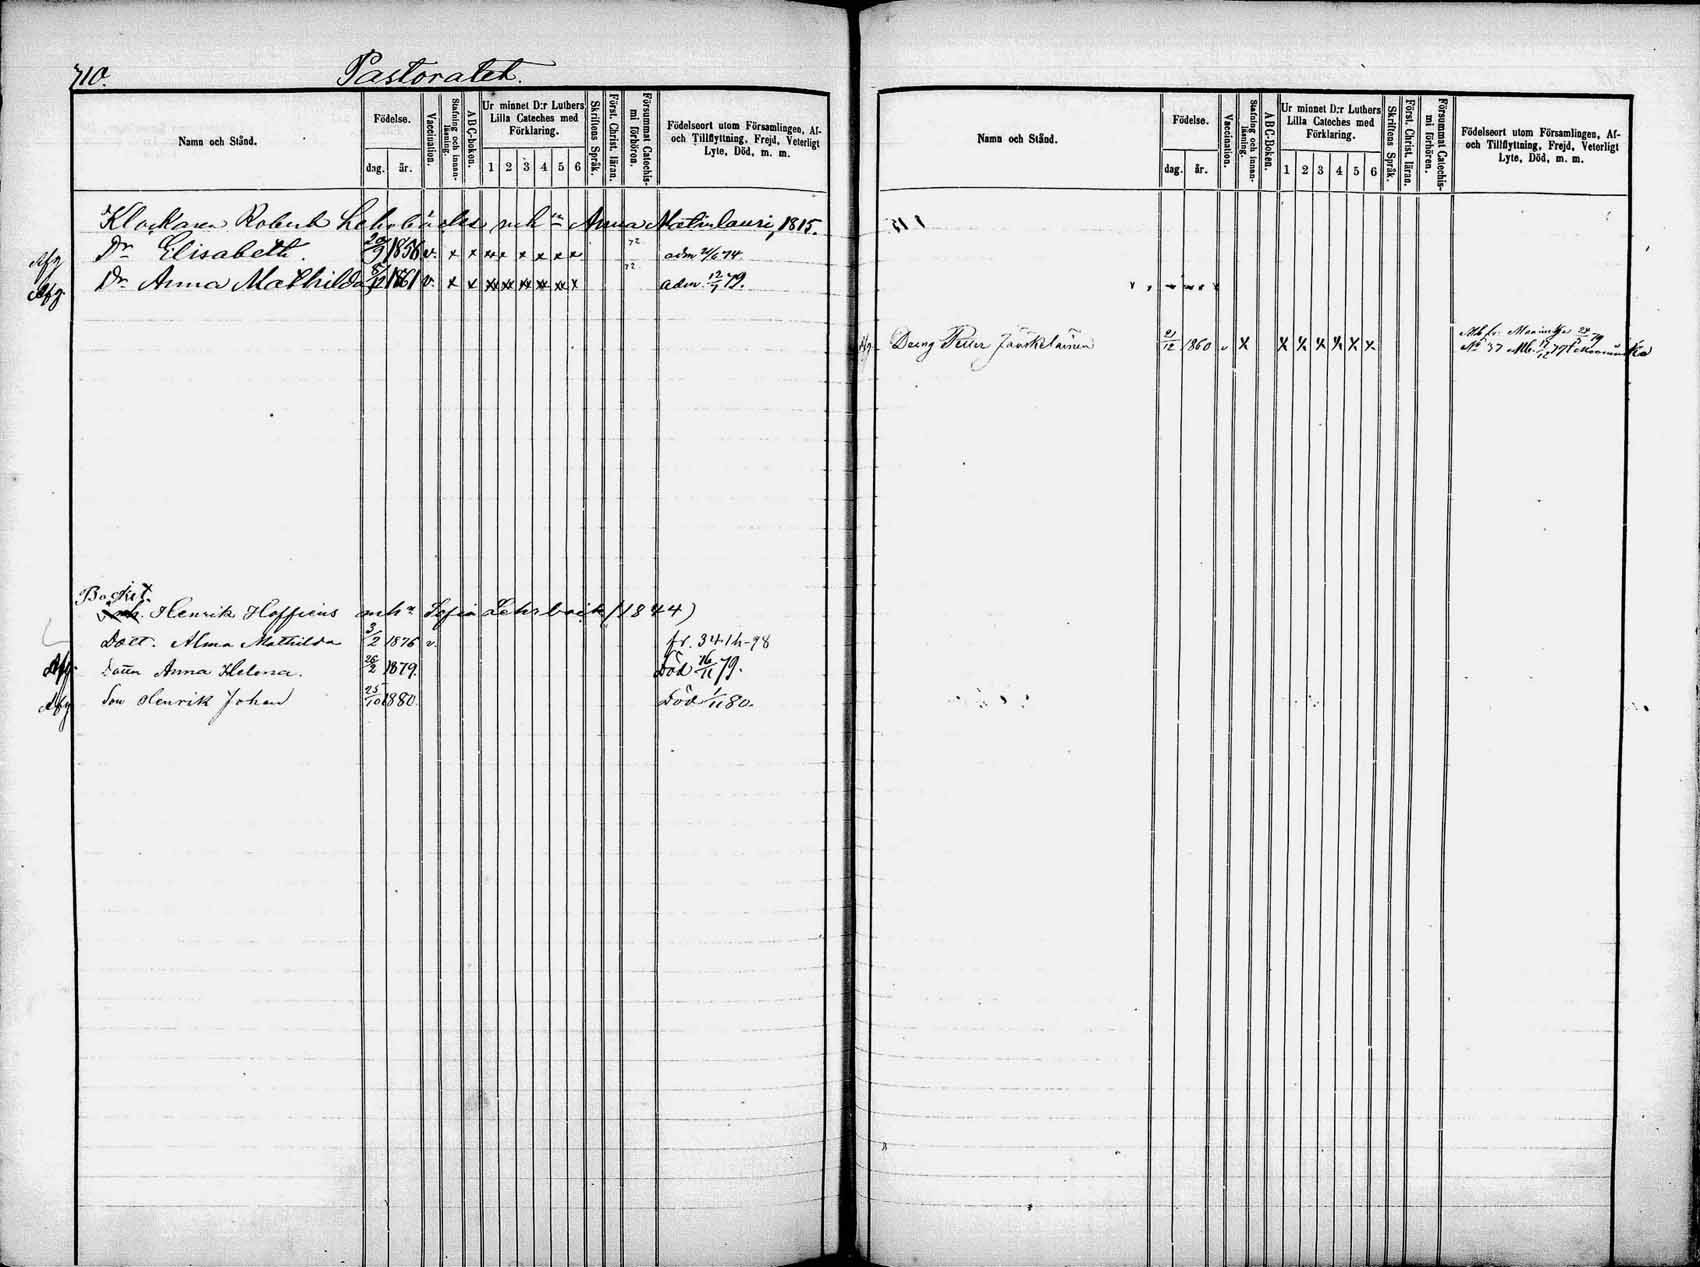 710. Pastoratet.
Namn och Stånd.
Födelse.
dag. år.
Vaccination.
Stafning och innanläsning.
ABC-boken.
Ur minnet D:r Luthers Lilla Cateches med Förklaring.
1 2 3 4 5 6
Skriftens Språk.
Först. Christ. läran.
Försummat Catechismi förhören.
Födelseort utom Församlingen, Af- och Tillflyttning, Frejd, Veterligt Lyte, Död, m. m.
Klockaren Robert Lehrbäcks enka Anna 1815.
Afg Dr Elisabeth. 1858 v. x x x x x x x x 72 adm 74
Afg. Dr Anna Mathilda 1861 v. x x xx xx xx xx xx x 72 adm. 79.
Backst.
Henrik Hoffrens mhu Sofia Lehrbäck (1844)
Dott. Alma Mathilda 3/2 1876 v. fr. 341 h-98
Afg. Dottr Anna Helena. 26/2 1879. Död 16/11 79.
Afg Son Henrik Johan 25/10 1880 Död 1/11 80.
Namn och Stånd.
Födelse.
dag. år.
Vaccination.
Stafning och innanläsning.
ABC-Boken.
Ur minnet D:r Luthers Lilla Cateches med Förklaring.
1 2 3 4 5 6
Skriftens Språk.
Först. Christ. läran.
Försummat Catechismi förhören.
Födelseort utom Församlingen, Af- och Tillflyttning, Frejd, Veterligt Lyte, Död, m. m.
Afg. Dreng Petter Jääskeläinen 21/12 1860 v x x x x x x x